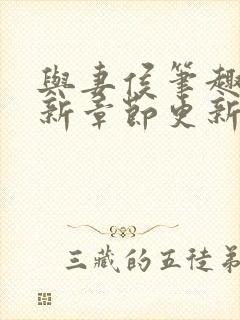 與妻侯筆趣
新章節更新
三藏的五徒弟